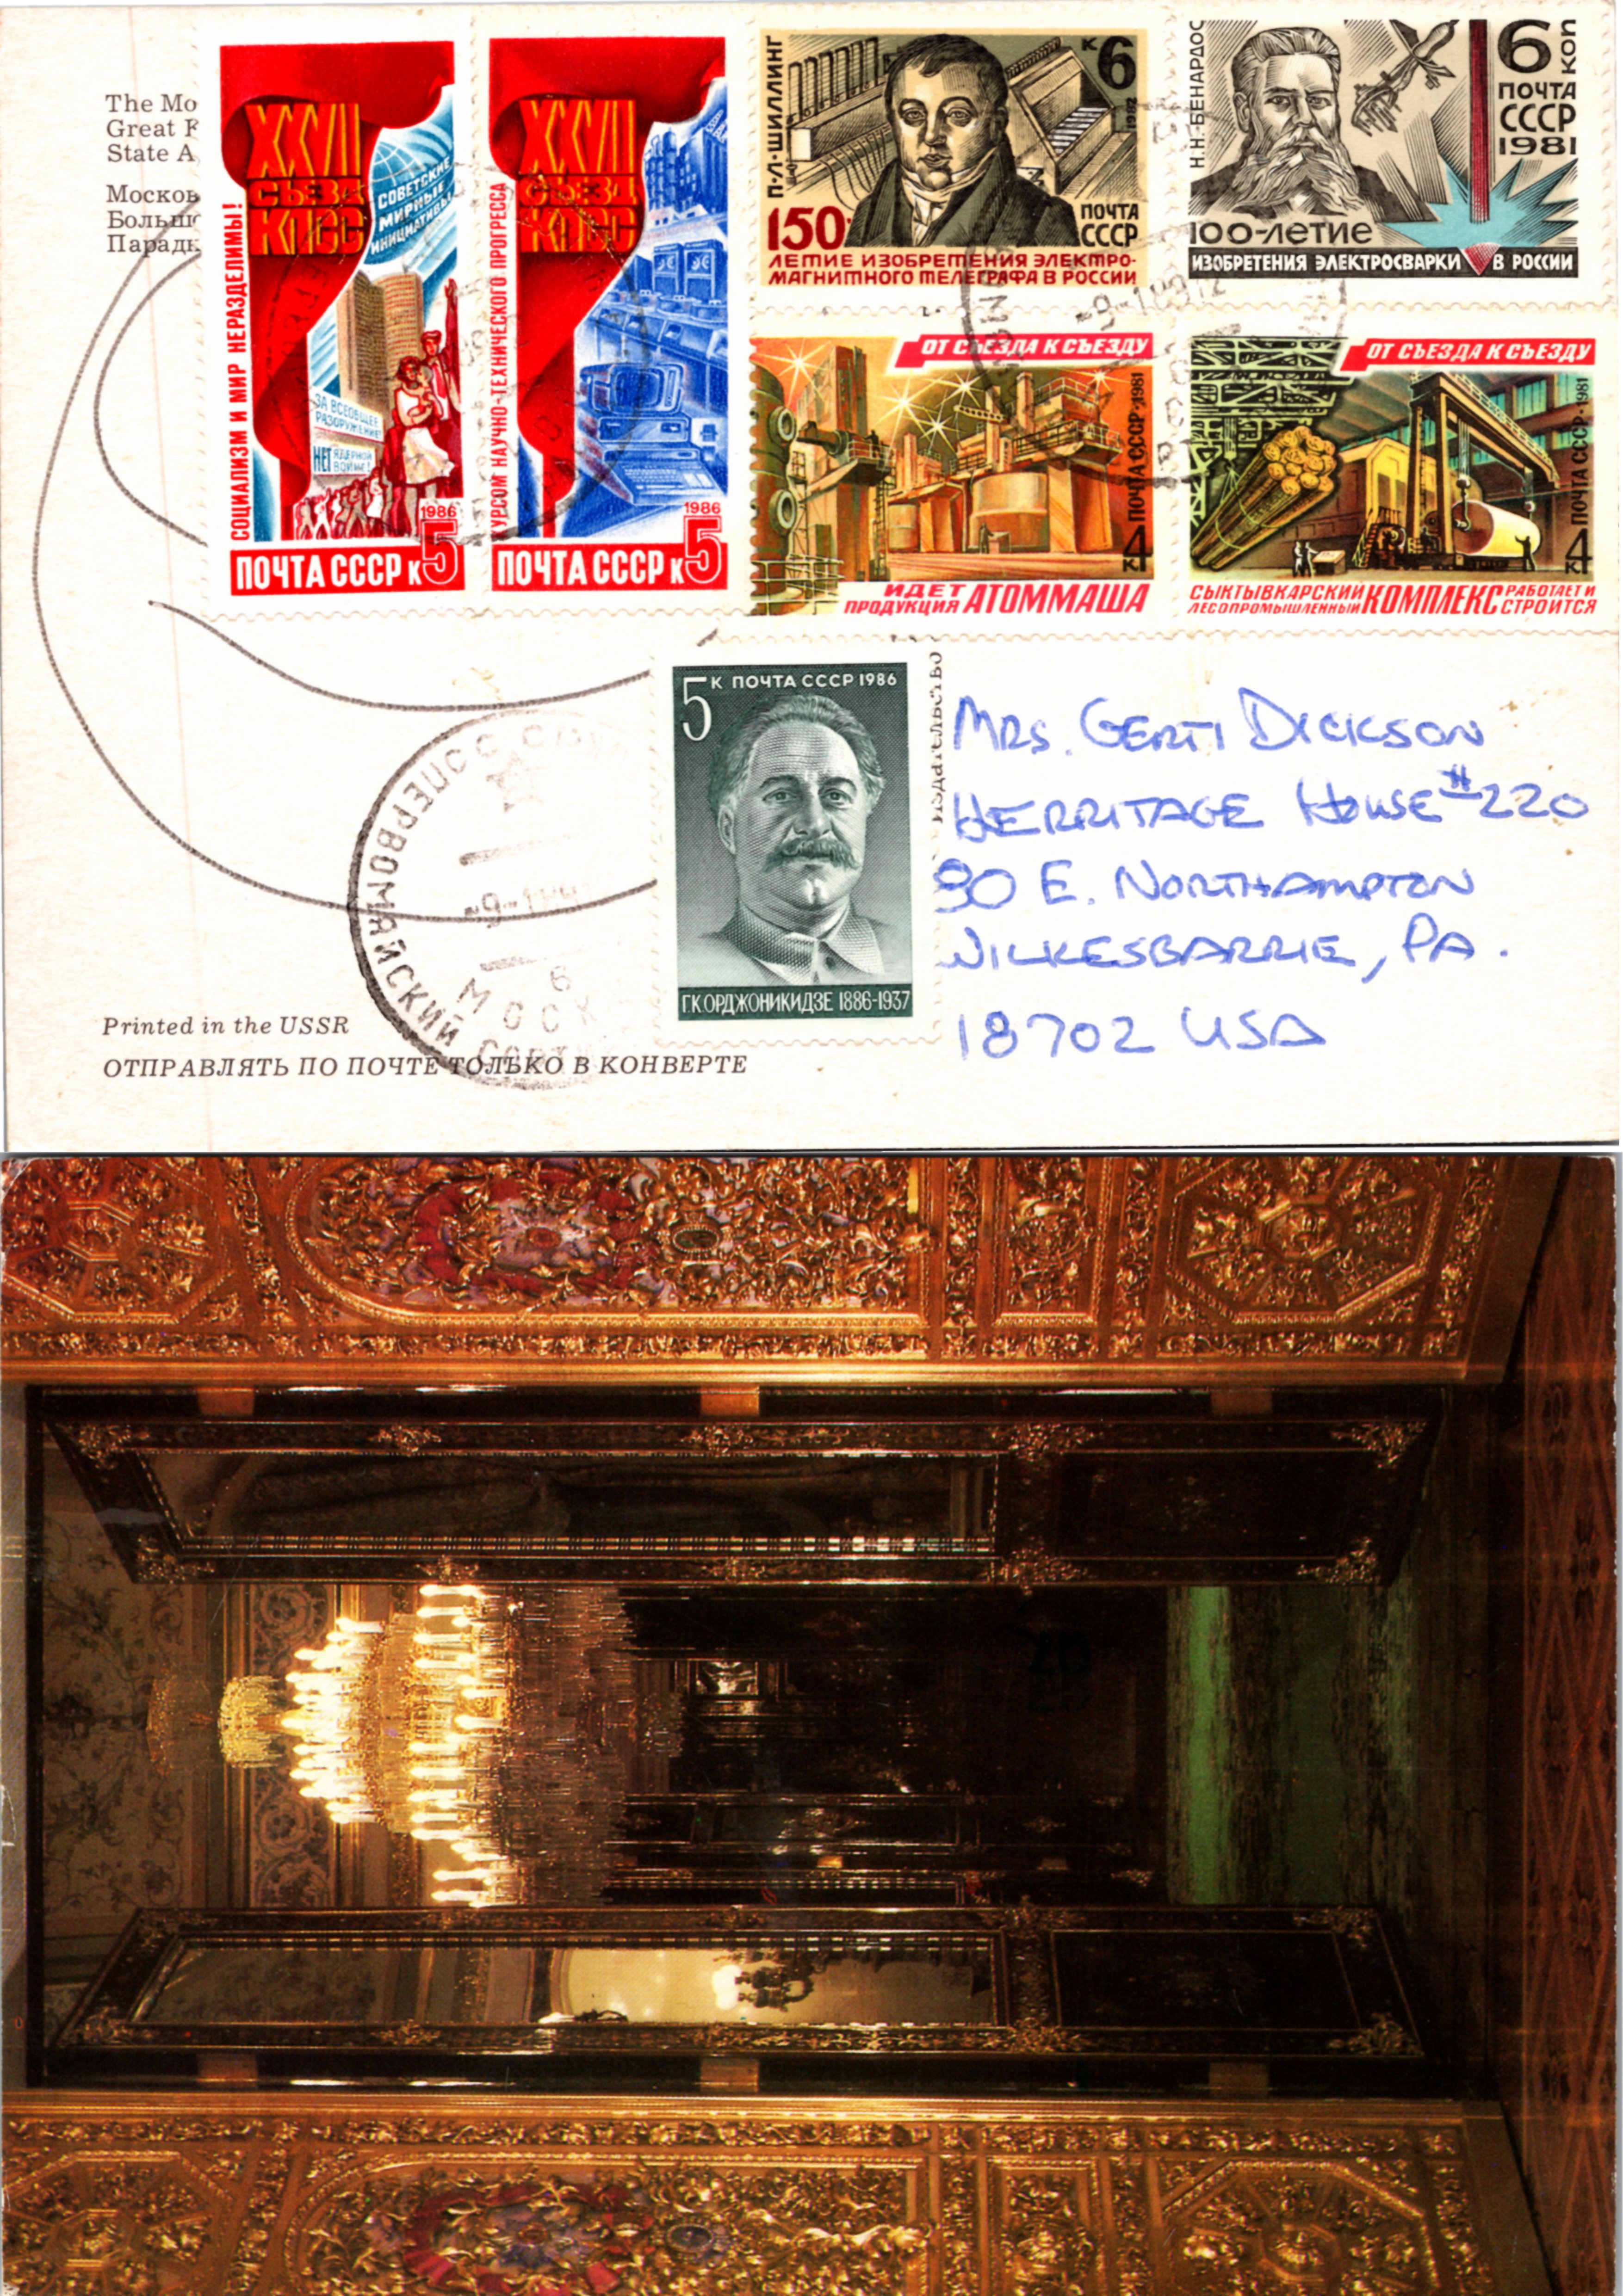 The Mo
Great
State A
Москов
Больш
Парадн
XXVII
СЪЕЗД
КПСС
СОВЕТСКИЕ
МИРНЫЕ
ИНИЦИАТИВЫ
СОЦИАЛИЗМ И МИР НЕРАЗДЕЛИМЫ!
ЗА ВСЕОБЩЕЕ
РАЗОРУЖЕНИЕ!
НЕТ ЯДЕРНОЙ
ВОЙНЕ!
1986
ПОЧТА СССР к5
XXVII
СЪЕЗД
КПСС
КУРСОМ НАУЧНО-ТЕХНИЧЕСКОГО ПРОГРЕССА
1986
ПОЧТА СССР к5
П·Л·ШИЛЛИНГ
К 6
1982
ПОЧТА
СССР
150-
ЛЕТИЕ ИЗОБРЕТЕНИЯ ЭЛЕКТРО-
МАГНИТНОГО ТЕЛЕГРАФА В РОССИИ
Н·Н·БЕНАРДОС
6 КОП
ПОЧТА
СССР
1981
100-летие
ИЗОБРЕТЕНИЯ ЭЛЕКТРОСВАРКИ В РОССИИ
ОТ СЪЕЗДА К СЪЕЗДУ
ПОЧТА СССР·1981
4 К
ИДЕТ
ПРОДУКЦИЯ АТОММАША
ОТ СЪЕЗДА К СЪЕЗДУ
ПОЧТА СССР·1981
4 К
СЫКТЫВКАРСКИЙ
ЛЕСОПРОМЫШЛЕННЫЙ КОМПЛЕКС РАБОТАЕТ И
СТРОИТСЯ
5 К ПОЧТА СССР 1986
Г.К.ОРДЖОНИКИДЗЕ 1886-1937
Издательство
MRS. GERTI DICKSON
HERRITAGE HOUSE #220
90 E. NORTHAMPTON
WILKESBARRIE, PA.
18702 USA
ПЕРВОМАЙСКИЙ
МОСК
6
Printed in the USSR
ОТПРАВЛЯТЬ ПО ПОЧТЕ ТОЛЬКО В КОНВЕРТЕ